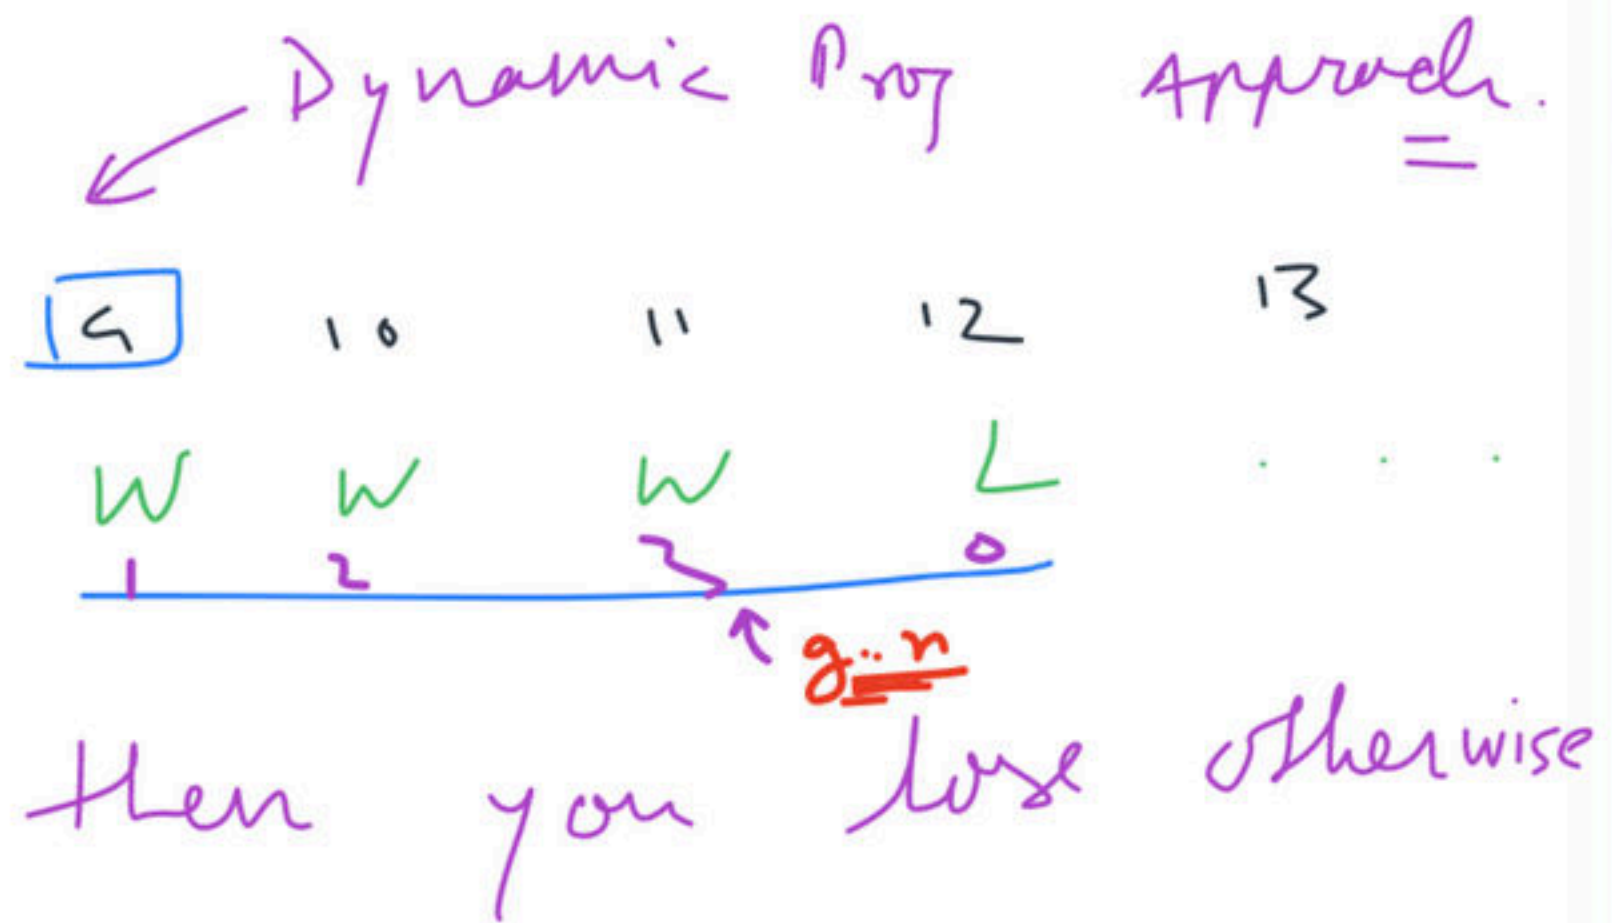 Dynamic Prog Approach.
9 10 11 12 13
W W W L . . .
1 2 3 0
g..n
then you lose otherwise